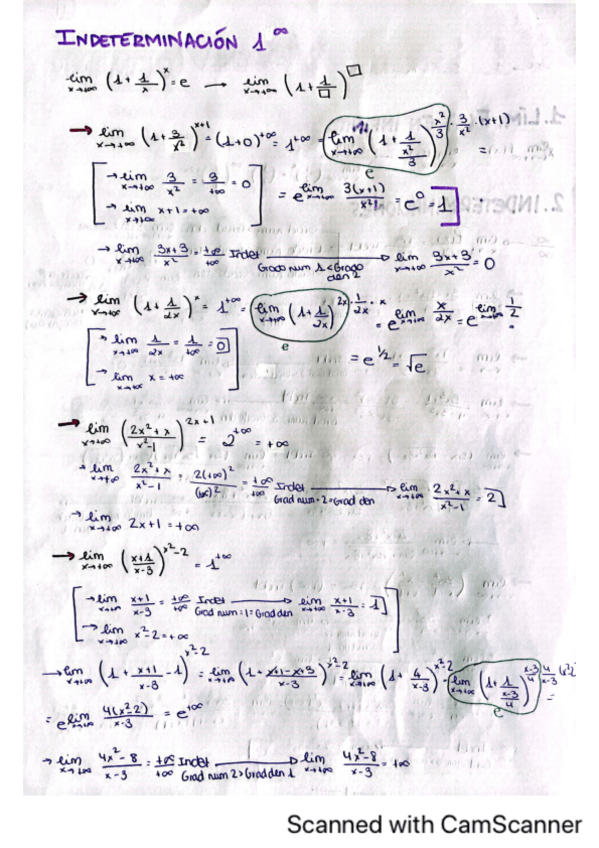 INDETERMINACIÓN 1^∞
lim x→+∞ (1 + 1/x)^x = e → lim x→+∞ (1 + 1/□)^□
→ lim x→+∞ (1 + 3/x²)^(x+1) = (1+0)^(+∞) = 1^(+∞) = lim x→+∞ (1 + 1/(x²/3))^(x²/3 · 3/x² · (x+1)) =
[→ lim x→+∞ 3/x² = 3/+∞ = 0
→ lim x→+∞ x+1 = +∞] = e^(lim x→+∞ 3(x+1)/x²) = e^0 = 1]
e
→ lim x→+∞ (3x+3)/x² = +∞/+∞ Indet → lim x→+∞ (3x+3)/x² = 0
Grado num 1 < Grado den 2
→ lim x→+∞ (1 + 1/2x)^x = 1^(+∞) = lim x→+∞ (1 + 1/2x)^(2x · 1/2x · x) = e^(lim x→+∞ x/2x) = e^(lim x→+∞ 1/2) =
e
[→ lim x→+∞ 1/2x = 1/+∞ = 0
→ lim x→+∞ x = +∞] = e^(1/2) = √e
→ lim x→+∞ ((2x²+x)/(x²-1))^(2x+1) = 2^(+∞) = +∞
→ lim x→+∞ (2x²+x)/(x²-1) = 2(+∞)²/(+∞)² = +∞/+∞ Indet → lim x→+∞ (2x²+x)/(x²-1) = 2]
Grad num = 2 = Grad den
→ lim x→+∞ 2x+1 = +∞
→ lim x→+∞ ((x+1)/(x-3))^(x²-2) = 1^(+∞)
[→ lim x→+∞ (x+1)/(x-3) = +∞/+∞ Indet → lim x→+∞ (x+1)/(x-3) = 1]
Grad num = 1 = Grad den
→ lim x→+∞ x²-2 = +∞]
→ lim x→+∞ (1 + (x+1)/(x-3) - 1)^(x²-2) = lim x→+∞ (1 + (x+1-x+3)/(x-3))^(x²-2) = lim x→+∞ (1 + 4/(x-3))^(x²-2) = lim x→+∞ (1 + 1/((x-3)/4))^((x-3)/4 · 4/(x-3) · (x²-2)) =
e
= e^(lim x→+∞ 4(x²-2)/(x-3)) = e^(+∞)
→ lim x→+∞ (4x²-8)/(x-3) = +∞/+∞ Indet → lim x→+∞ (4x²-8)/(x-3) = +∞
Grad num 2 > Grad den 1
Scanned with CamScanner